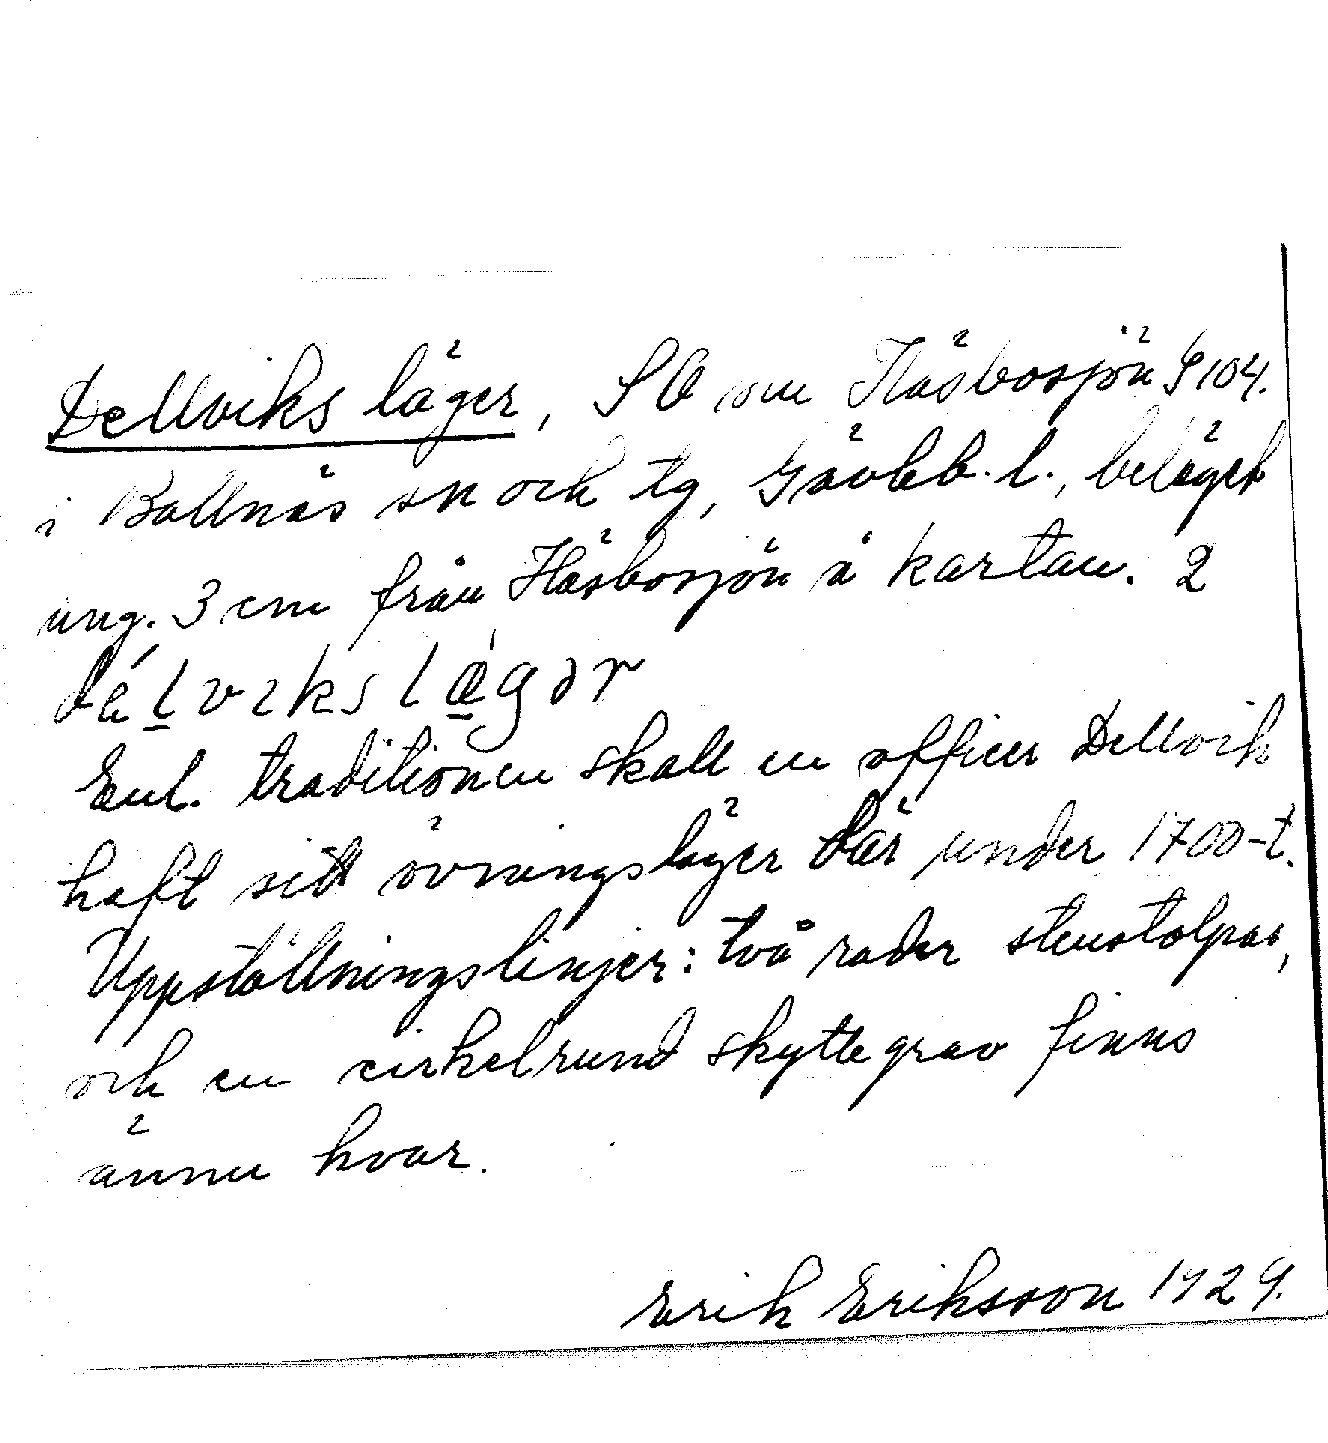 Dellviks läger, SO om Häsbosjön S 104.
i Bollnäs sn och tg, Gävleb. l., beläget
ung. 3 cm från Häsbosjön å kartan. 2
Enl. traditionen skall en officer Dellvik
haft sitt övningsläger där under 1700-t.
Uppställningslinjer: två rader stenstolpar,
och en cirkelrund skyttegrav finns
ännu kvar.
Erik Eriksson 1929.